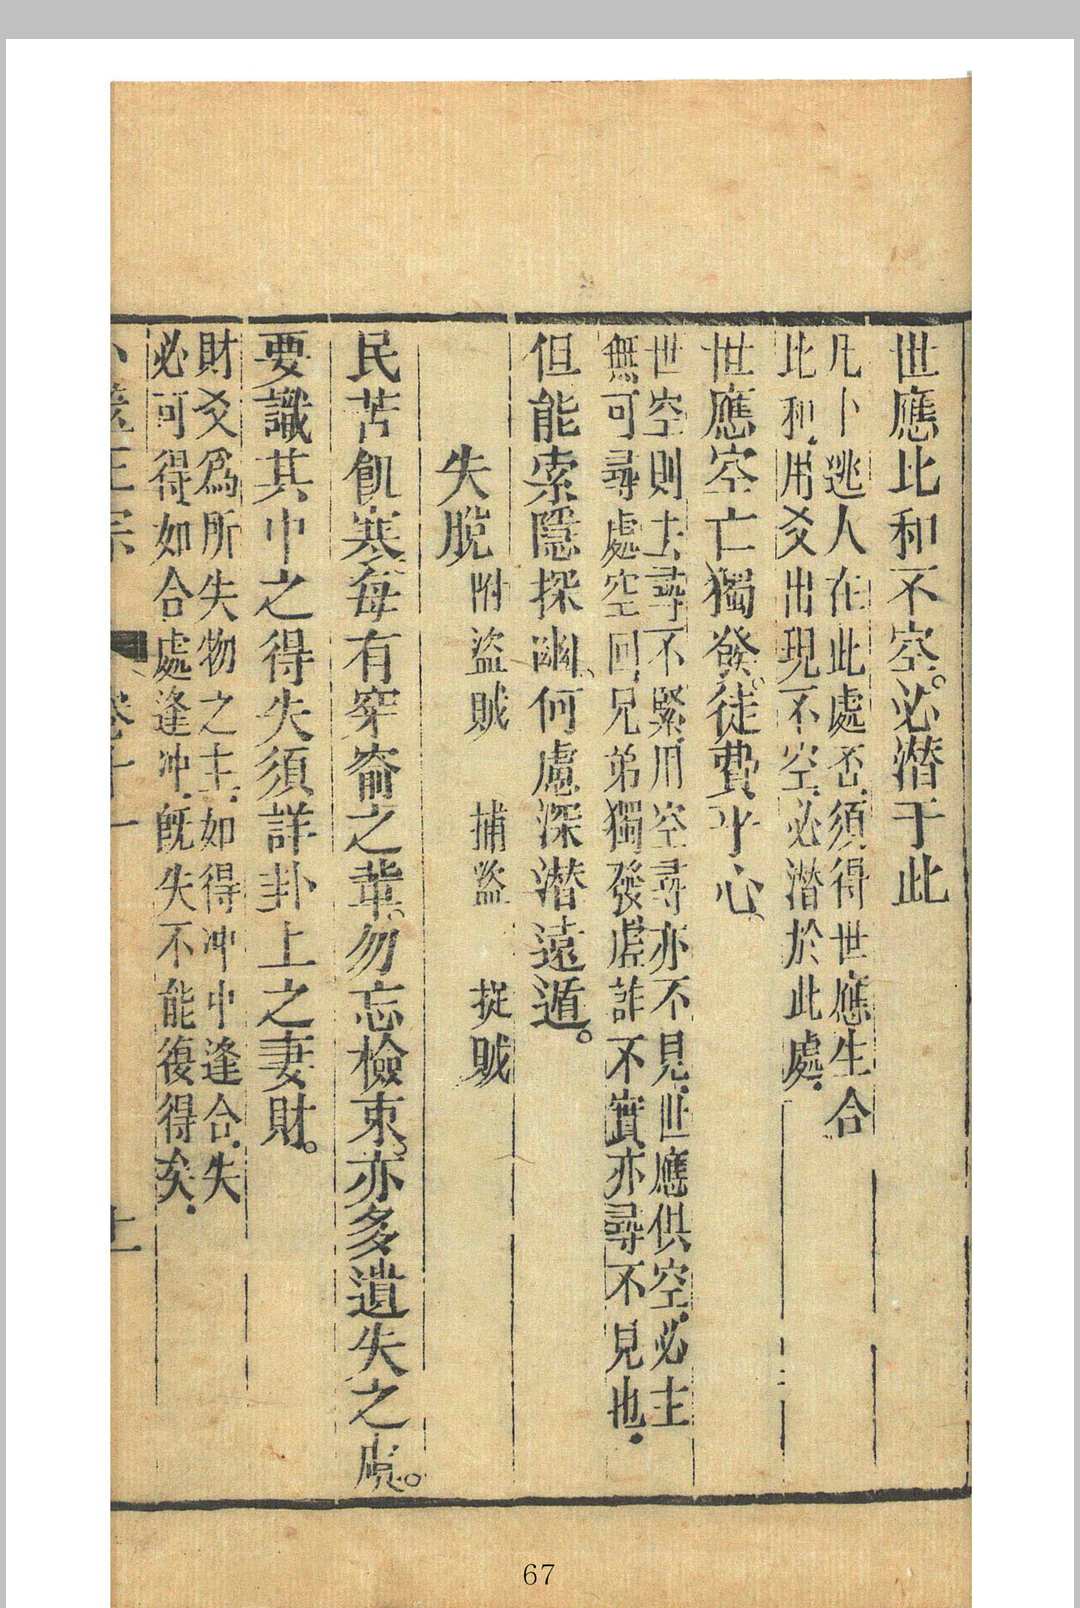 世應比和不空。必潛于此
凡卜逃人在此處否、須得世應生合
比和、用爻出現不空、必潛於此處、
世應空亡獨發、徒費乎心、
世空則主尋不緊、用空尋亦不見、世應俱空、必主
無可尋處空回、兄弟獨發、虛詐不實、亦尋不見也、
但能索隱探幽、何慮深潛遠遁。
失脫 附盜賊 捕盜 捉賊
民苦飢寒、每有穿窬之輩。勿忘檢束、亦多遺失之虞。
要識其中之得失、須詳卦上之妻財。
財爻爲所失物之主、如得沖中逢合、失
必可得、如合處逢冲、旣失不能復得矣、
卜筮正宗 卷十一